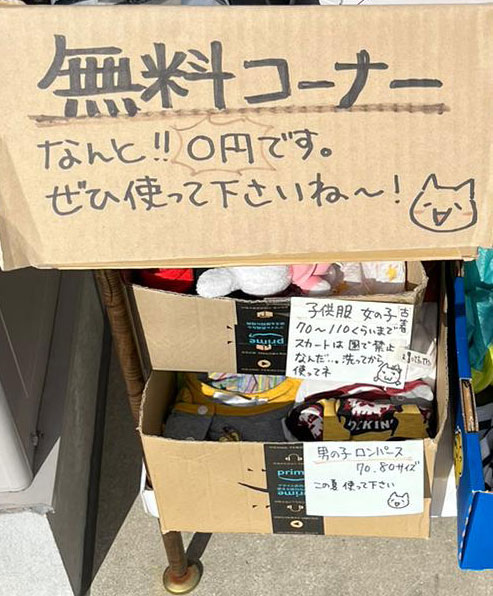 無料コーナー
なんと!! 0円です。
ぜひ使って下さいね〜!
子供服 女の子 古着
70〜110くらいまで
スカートは園で禁止
なんだ…。洗ってから
使ってネ
prime
男の子 ロンパース
70.80サイズ
この夏 使って下さい
prime
prime